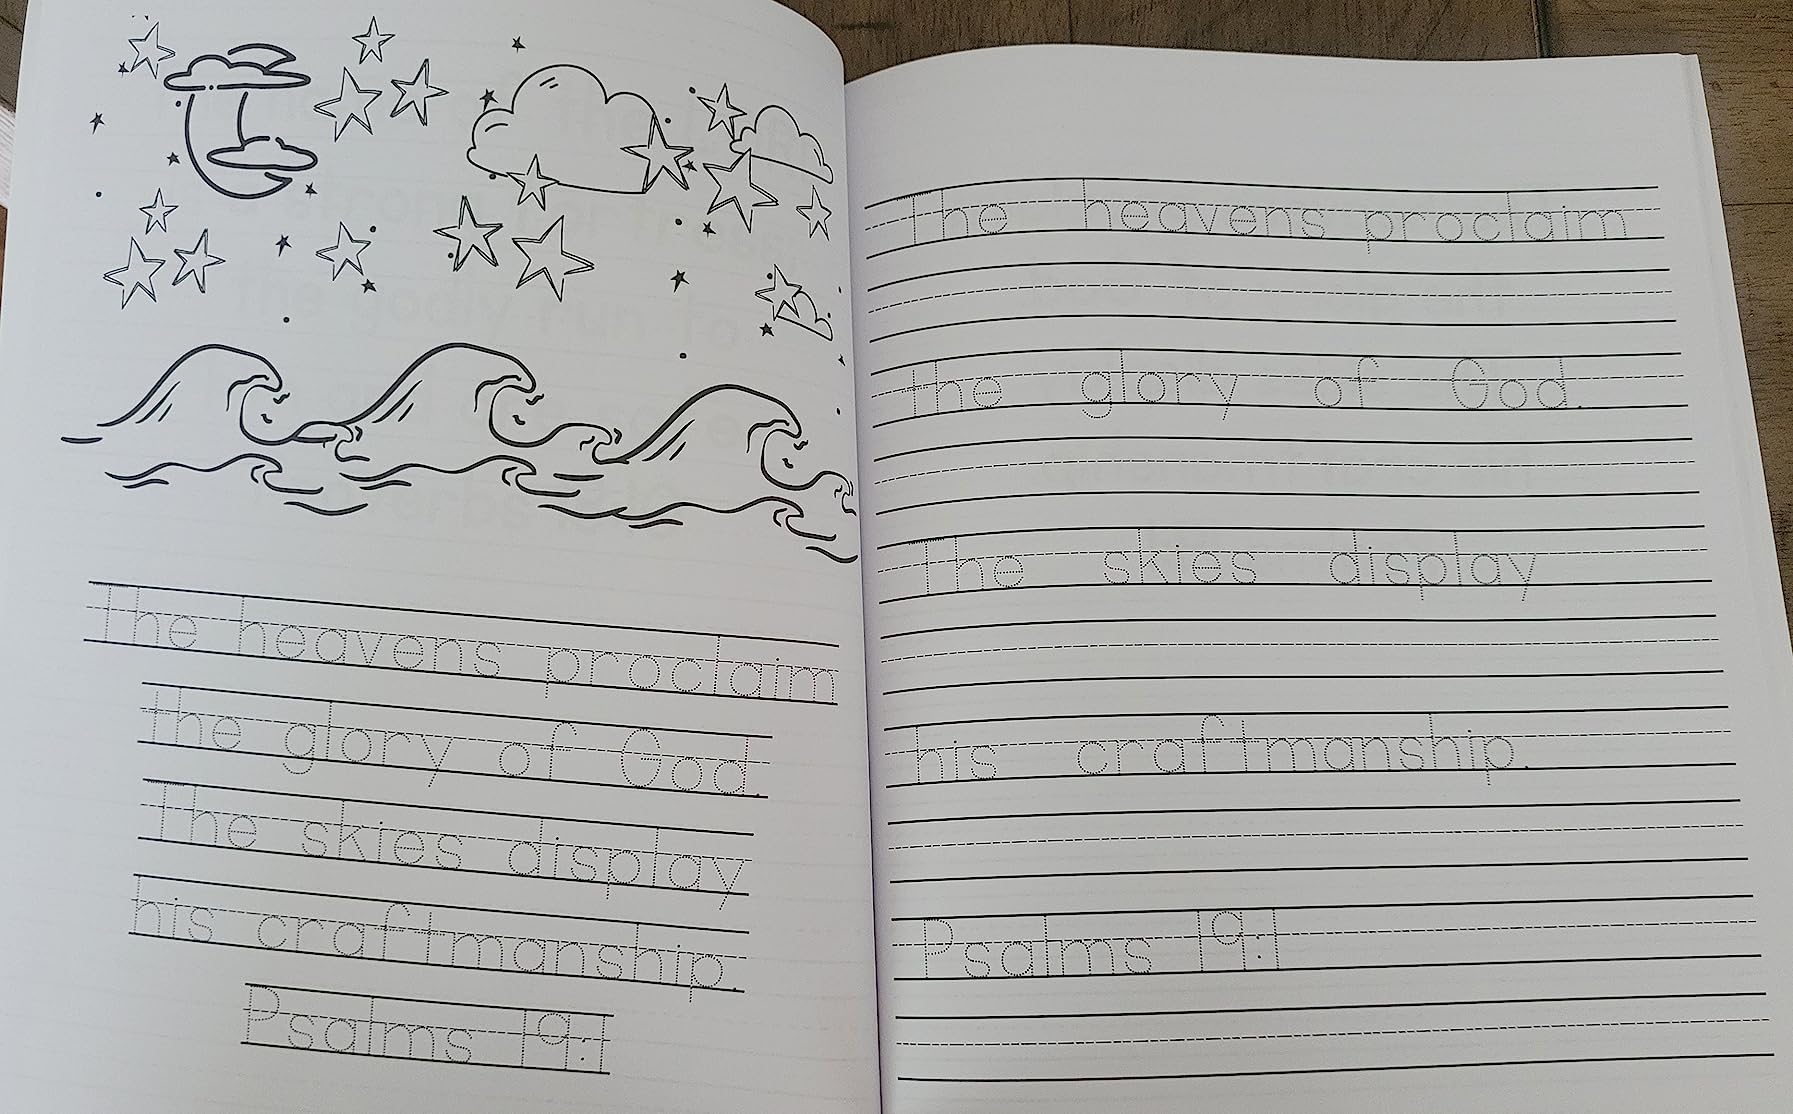 The heavens proclaim
the glory of God.
The skies display
his craftmanship.
Psalms 19:1
The heavens proclaim
the glory of God.
The skies display
his craftmanship.
Psalms 19:1